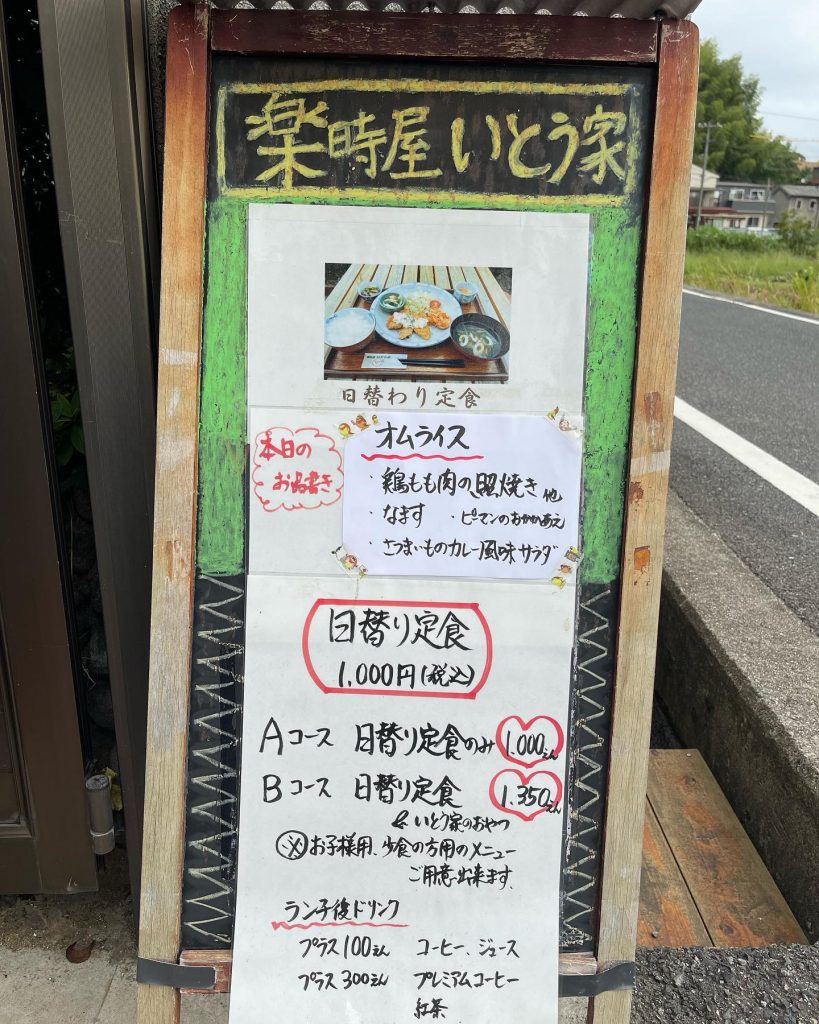 楽時屋 いとう家
日替わり定食
本日の
お品書き
オムライス
・鶏もも肉の照焼き 他
・なます ・ピーマンのおかかあえ
・さつまいものカレー風味サラダ
日替り定食
1,000円(税込)
Aコース 日替り定食のみ 1.000えん
Bコース 日替り定食 1.350えん
& いとう家のおやつ
※お子様用、少食の方用のメニュー
ご用意出来ます。
ランチ後ドリンク
プラス100えん コーヒー、ジュース
プラス300えん プレミアムコーヒー
紅茶